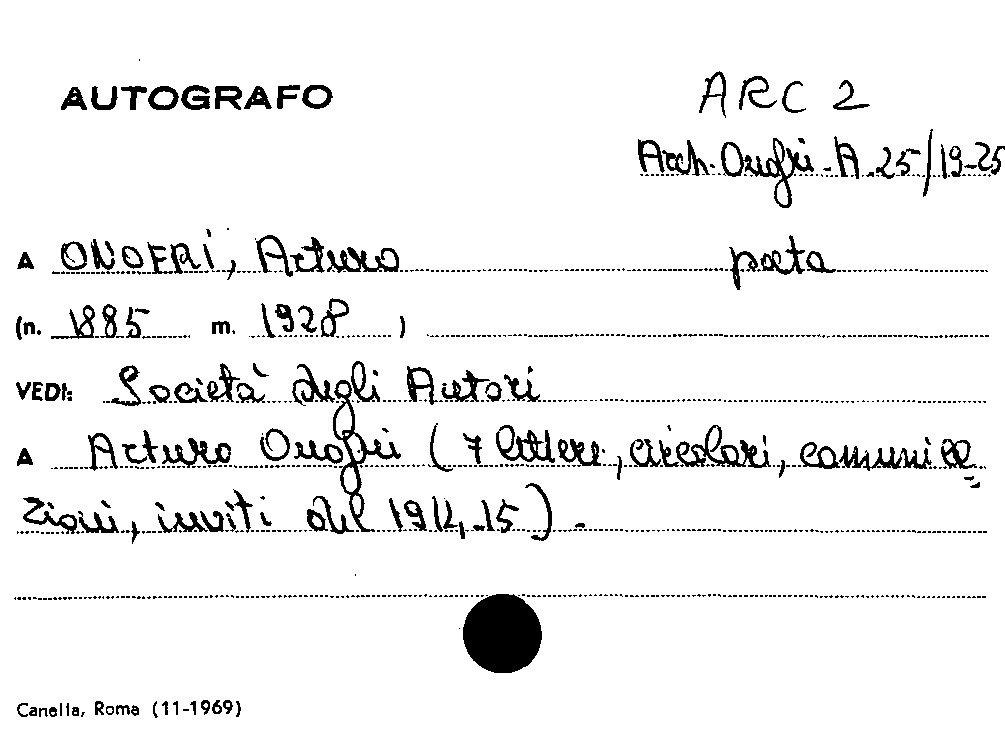 AUTOGRAFO
ARC 2
Arch. Onofri - A. 25/19-25
A ONOFRI, Arturo poeta
(n. 1885 m. 1928 )
VEDI: Società degli Autori
A Arturo Onofri ( 7 lettere, circolari, comunica
zioni, inviti del 1914-15).
Canella, Roma (11-1969)